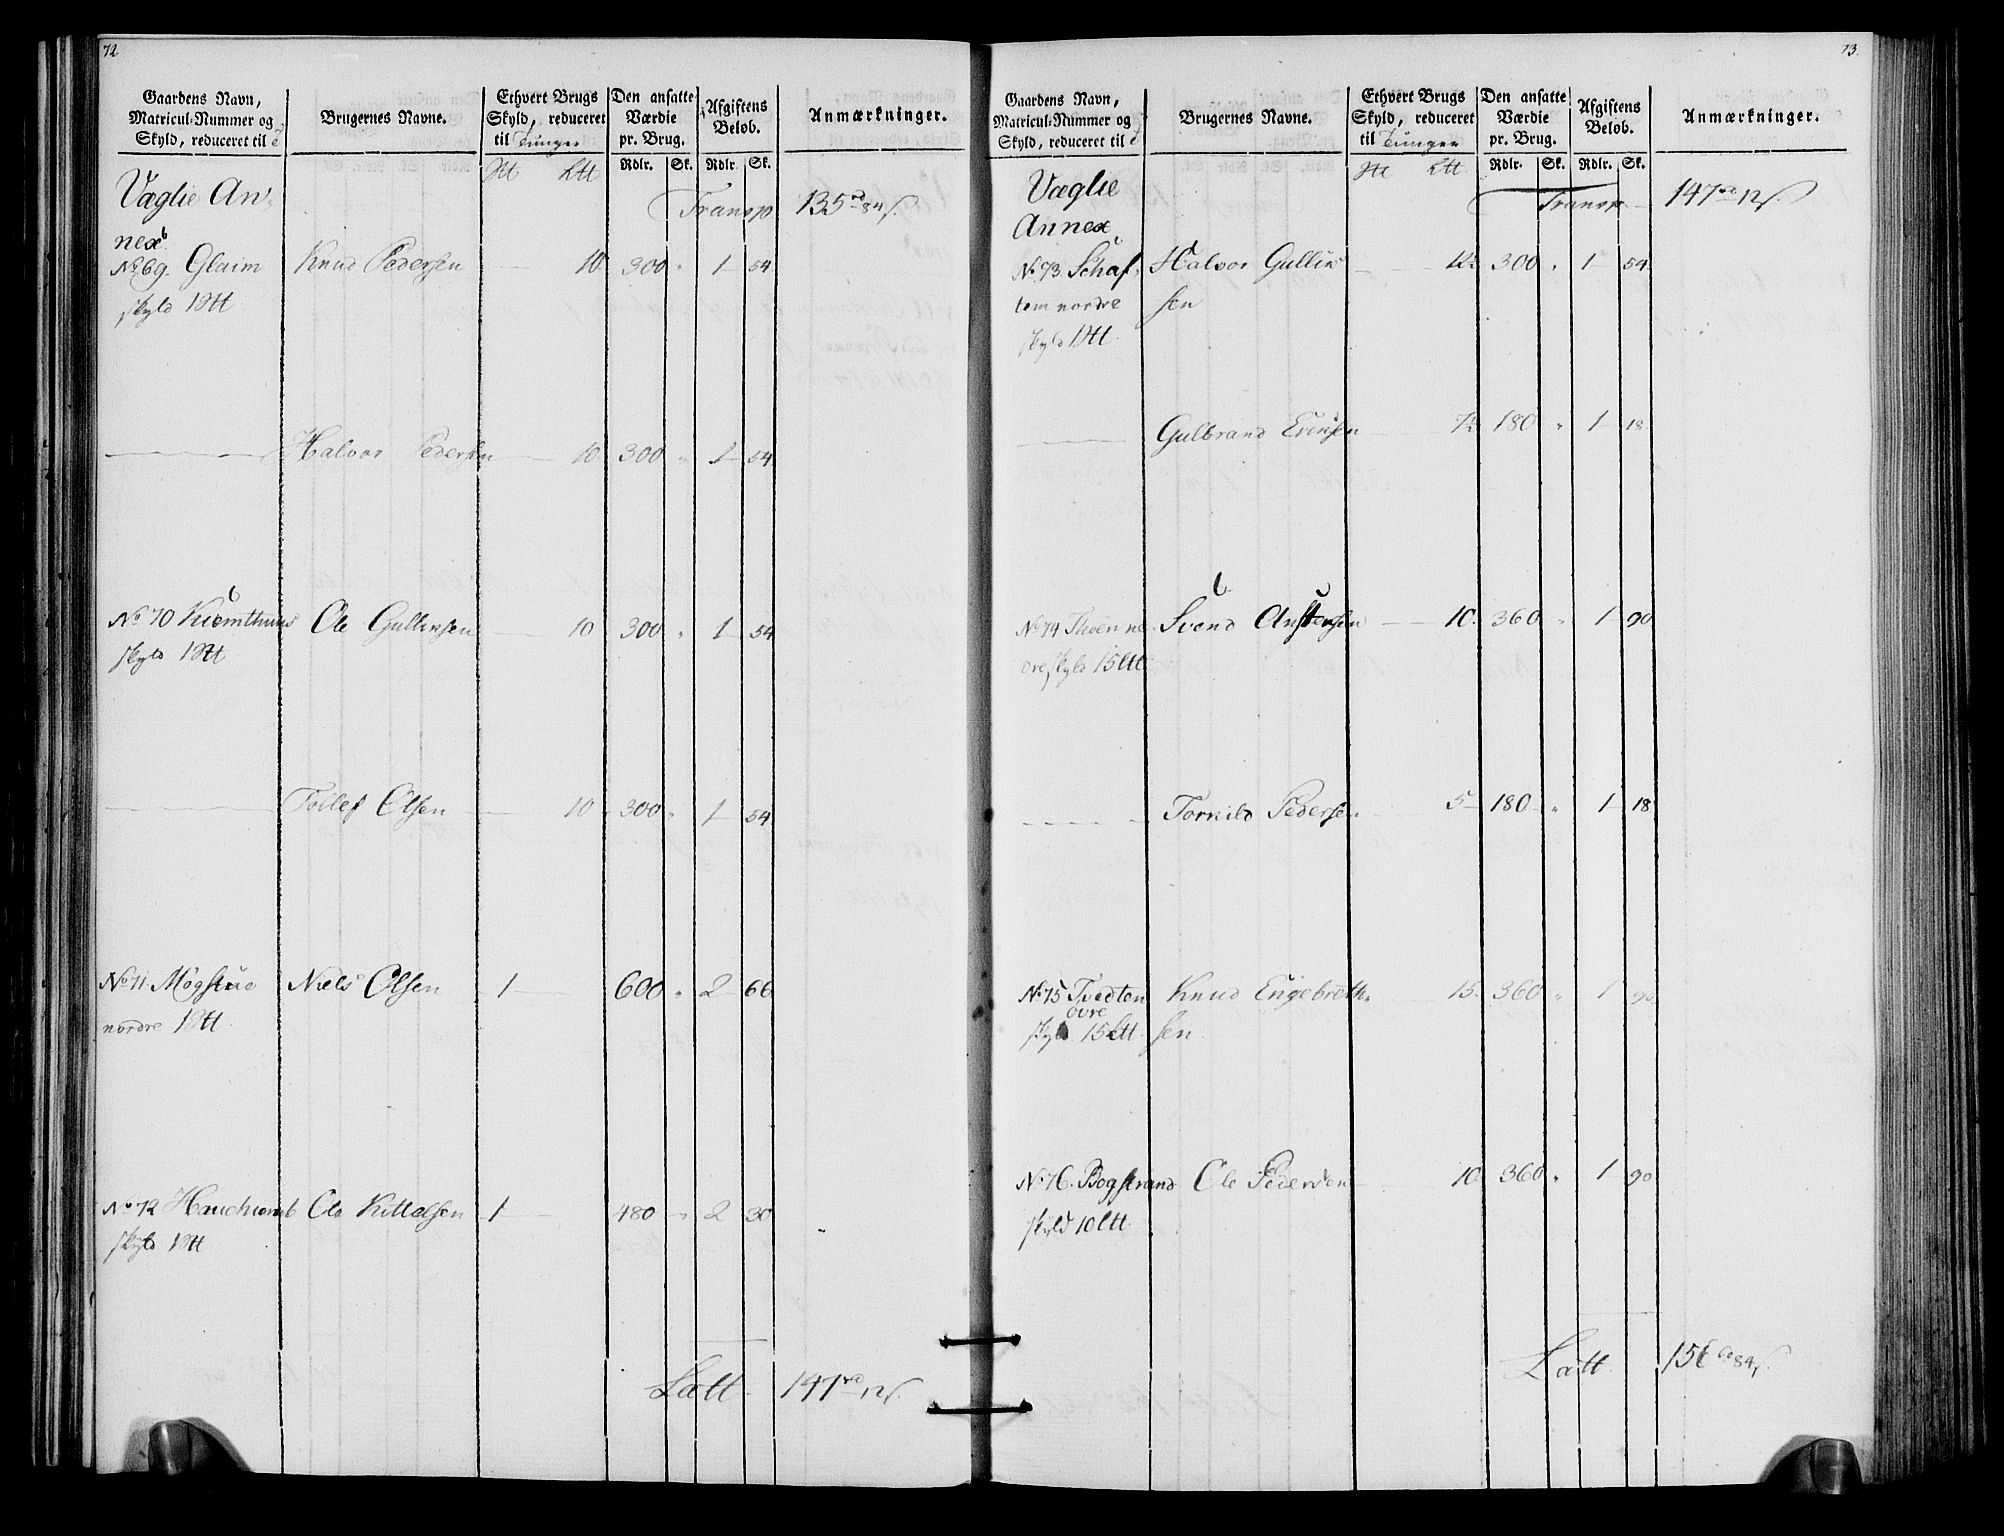 72
Gaardens Navn, Matricul-Nummer og Skyld, reduceret til
Brugernes Navne.
Ethvert Brugs Skyld, reduceret til Tunger
Den ansatte Værdie pr. Brug.
Afgiftens Beløb.
Anmærkninger.
Rdlr. Sk. Rdlr. Sk.
Væglie An-
nex
Transp 135 rd 84 s.
No 69. Glaim Knud Pedersen 10 300 " 1 54
skyld 1 ℔
Halvor Pedersen 10 300 " 1 54
No 70 Kiemthuus Ole Gullensen 10 300 " 1 54
skyld 1 ℔
Tollef Olsen 10 300 " 1 54
No 71 Mogstue Niels Olsen 1 600 " 2 66
nordre 1 ℔
No 72 Ole Kittelsen 1 480 " 2 30
skyld 1 ℔
Latt 147 rd 12 s.
73.
Gaardens Navn, Matricul-Nummer og Skyld, reduceret til
Brugernes Navne.
Ethvert Brugs Skyld, reduceret til Tunger
Den ansatte Værdie pr. Brug.
Afgiftens Beløb.
Anmærkninger.
Rdlr. Sk. Rdlr. Sk.
Væglie
Annex
Transp 147 rd 12 s.
No 73. Schaf- Halvor Gullik- 12 300 " 1 54
tem nordre sen
skyld 1 ℔
Gulbrand Erinsen 7½ 180 " 1 18
No 74 Thoen ne- Svend Anstensen 10 360 " 1 90
dre skyld 15 L℔
Tornild Pedersen 5 180 " 1 18
No 75 Tvedten Knud Engebreth- 15 360 " 1 90
øvre
skyld 15 L℔ sen
No 76. Bogstrand Ole Pedersen 10 360 " 1 90
skyld 10 L℔
Latt 156 rd 84 s.